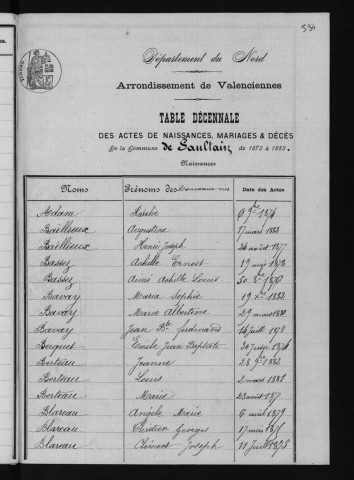 534
Département du Nord
Arrondissement de Valenciennes
TABLE DÉCENNALE
DES ACTES DE NAISSANCES, MARIAGES & DÉCÈS
De la Commune de Saultain de 1873 à 1883.
Naissances
Noms Prénoms des Nouveaux-nés Date des Actes
Adam 9 9bre 1876
Baillieux Augustine 7 mars 1882
Baillieux Henri Joseph 24 août 1877
Bassez Achille Ernest 19 mai 1873
Bassez Aimé Achille Louis 30 8bre
Bavay Maria Sophie 19 1882
Bavay Marie Albertine 29 mars
Bavay Jean Bte Ferdinand 14 Juillet 1878
Berquet Emile Jean Baptiste 30
Berteau Jeanne 23 9bre 1882
Berteau Louis 2 mars 1881
Berteau Marie 23 août 1877
Blareau Angèle Marie 6 avril 1879
Blareau Chrétien Georges 17 mars
Blareau Clément Joseph 11 Juillet 1875